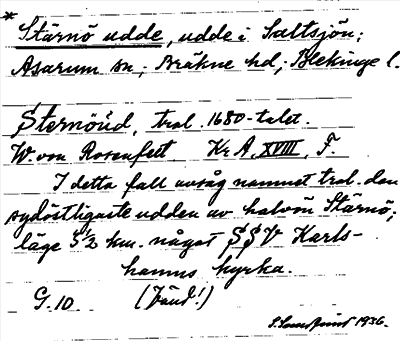 * Stärnö udde, udde i Saltsjön;
Asarum sn; Bräkne hd; Blekinge l.
Sternöüd, trol. 1680-talet.
W. von Rosenfelt Kr. A. XVIII, F.
I detta fall avsåg namnet trol. den
sydöstligaste udden av halvön Stärnö;
läge 5 1/2 km. något SSV Karls-
hamns kyrka.
G. 10 (Länd!)
1936.